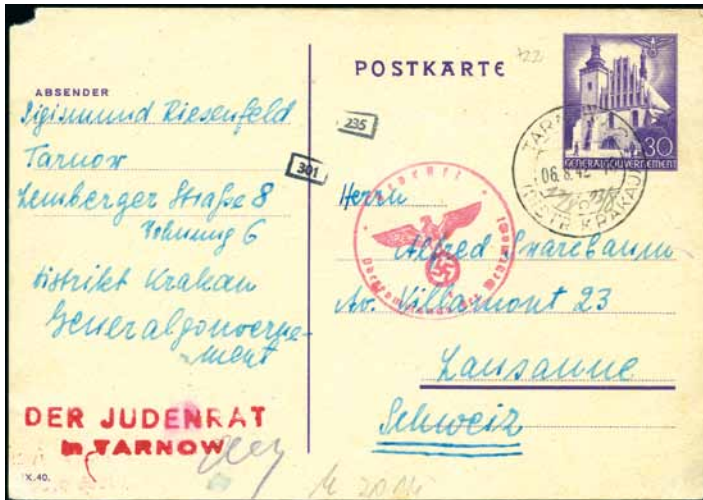 ABSENDER
Sigismund Riesenfeld
Tarnow
Lemberger Straße 8
Wohnung 6
Distrikt Krakau
Generalgouverne-
ment
DER JUDENRAT
in TARNOW
X.40.
POSTKARTE
235
301
30
GENERALGOUVERNEMENT
TARNOW
06.8.42
(DISTR. KRAKAU)
Geprüft
Oberkommando der Wehrmacht
Herrn
Alfred
Av. Villamont 23
Lausanne
Schweiz